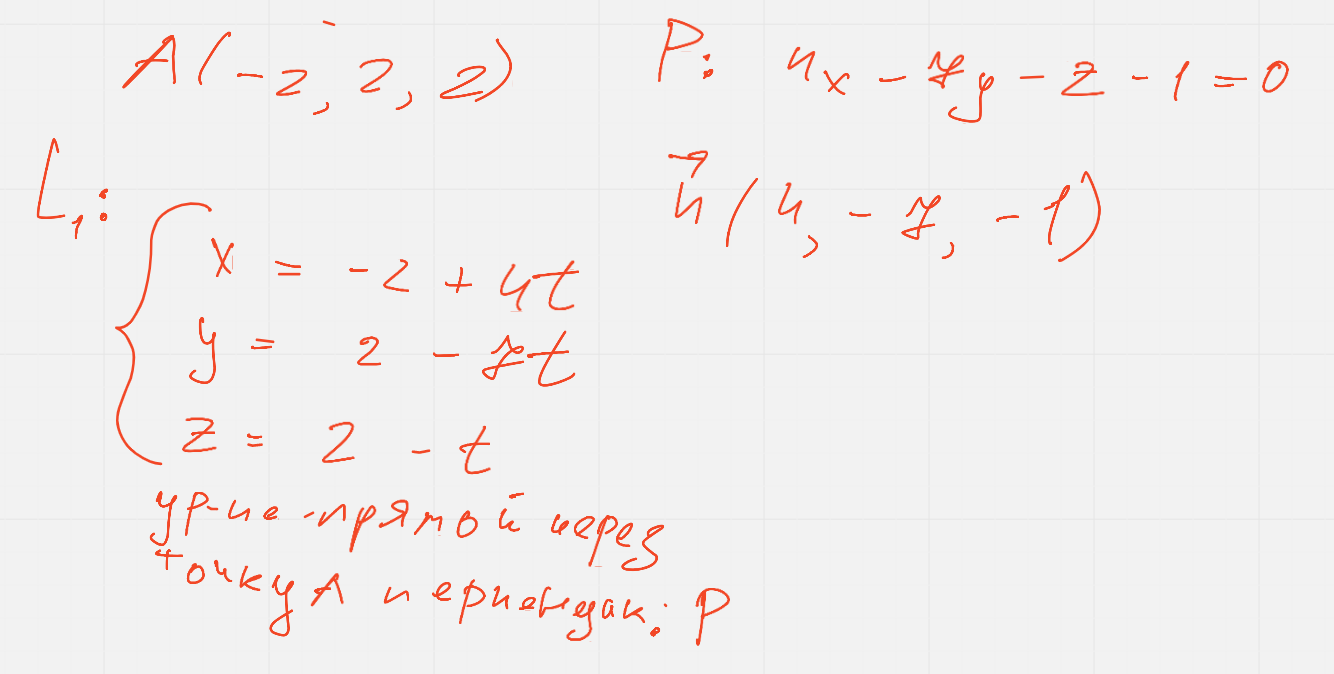 A(-2, 2, 2)    P: 4x - 7y - z - 1 = 0
L₁:    n⃗(4, -7, -1)
x = -2 + 4t
y = 2 - 7t
z = 2 - t
ур-не прямой через
точку А перпендик. P